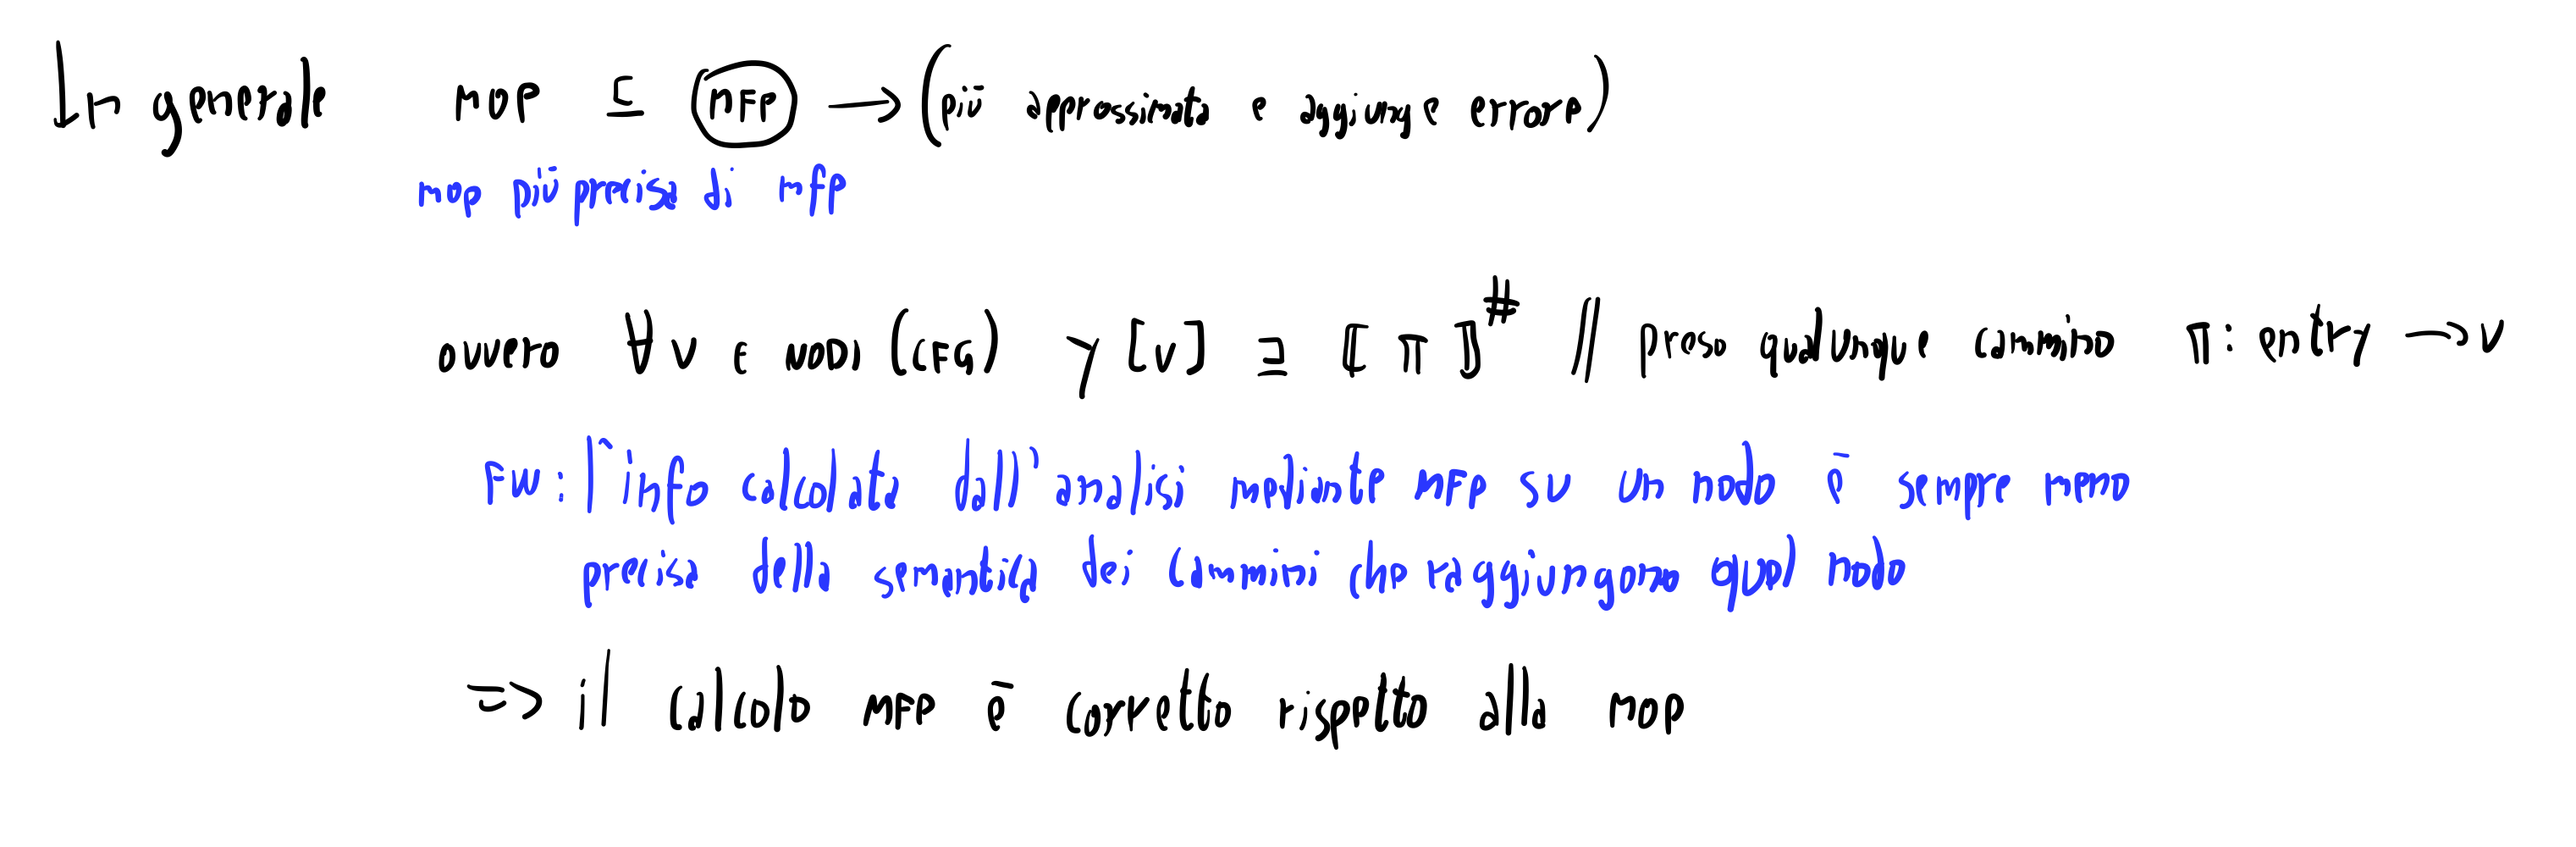 In generale MOP ⊑ MFP → (più approssimata e aggiunge errore)
mop più precisa di mfp
ovvero ∀ v ∈ NODI (CFG) y [v] ⊒ ⟦ π ⟧# // preso qualunque cammino π: entry → v
FW: l'info calcolata dall'analisi mediante MFP su un nodo è sempre meno
precisa della semantica dei cammini che raggiungono quel nodo
=> il calcolo MFP è corretto rispetto alla MOP